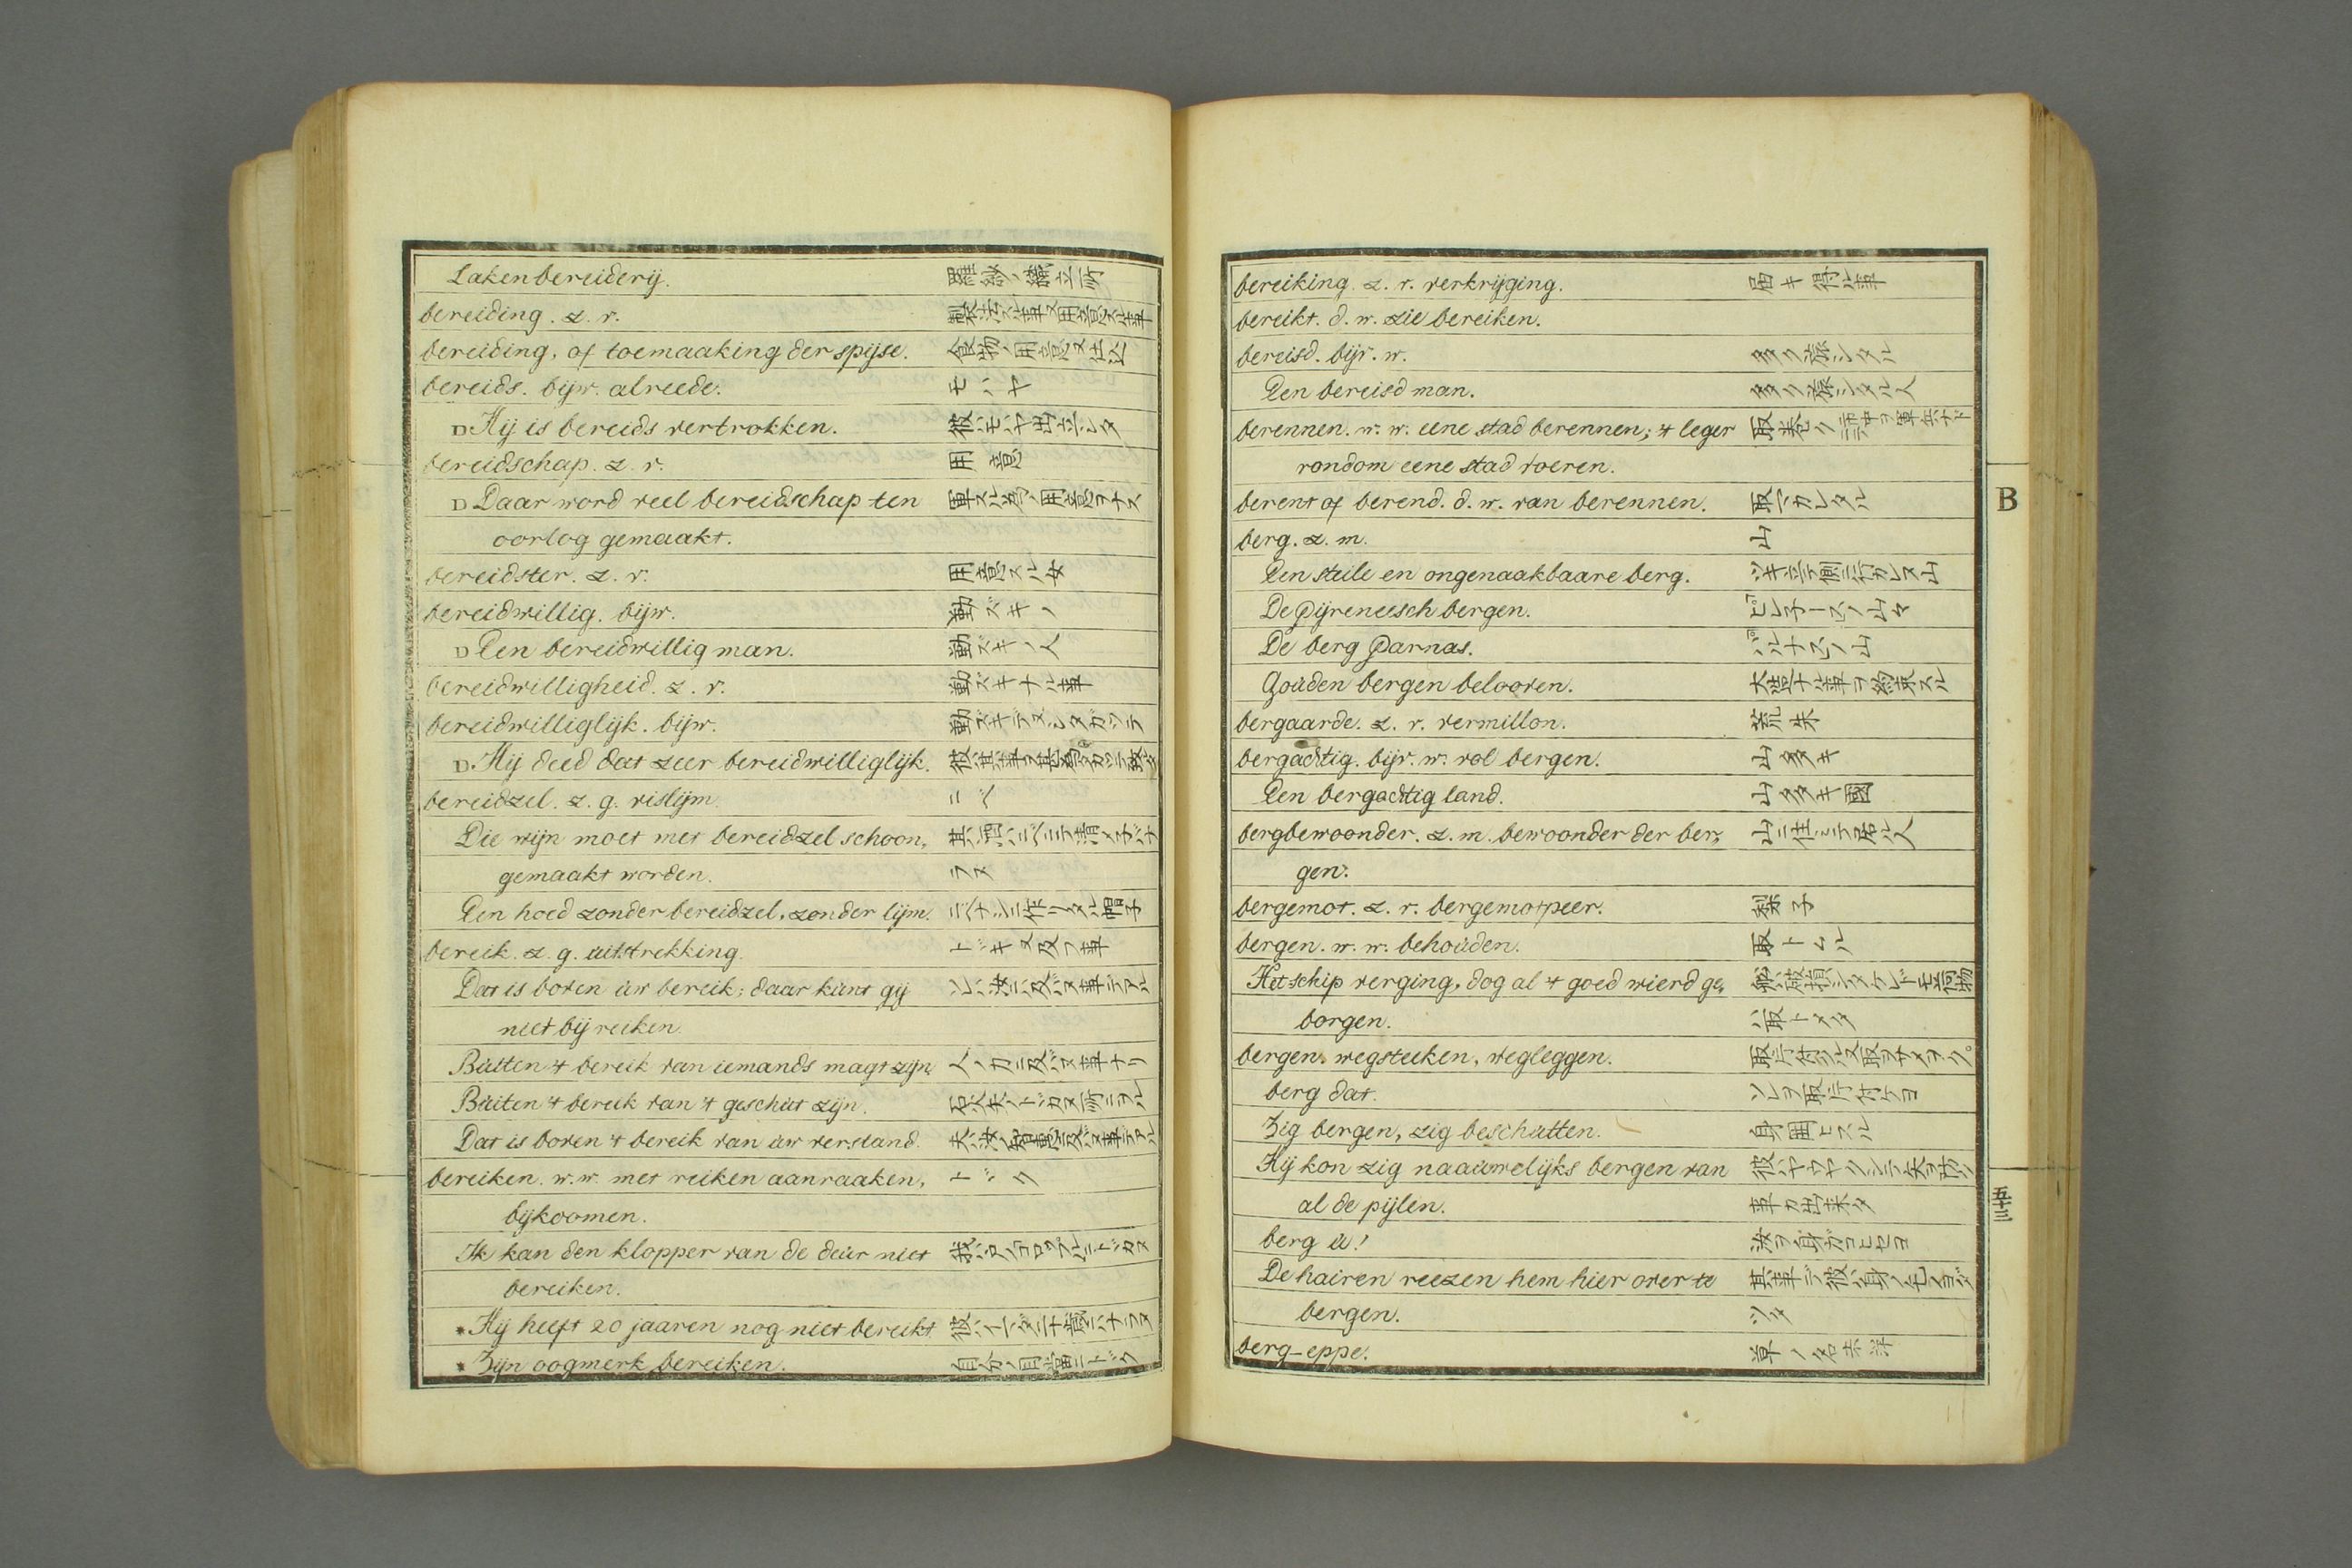 Lakenbereiderij. 羅紗ノ織立所
bereiding. z. v. 製法スル事又用意スル事
bereiding, of toemaaking der spijse. 食物ノ用意又仕込
bereids. bijw. alreede. モハヤ
D Hij is bereids vertrokken. 彼ハモハヤ出立シタ
bereidschap. z. v. 用意
D Daar word veel bereidschap ten 軍スル為ノ用意ヲナス
oorlog gemaakt.
bereidster. z. v. 用意スル女
bereidwillig. bijw. 勤ズキノ
D Een bereidwillig man. 勤ズキノ人
bereidwilligheid. z. v. 勤ズキナル事
bereidwilliglijk. bijw. 勤ズキデ又シタガツテ
D Hij deed dat zeer bereidwilliglijk.
bereidzel. z. g. vislijm. ニベ
Die wijn moet met bereidzel schoon„ 其酒ハニベニテ清メ子バナ
gemaakt worden. ラヌ
Een hoed zonder bereidzel, zonder lijm. ニベナシニ作リタル帽子
bereik. z. g. uitstrekking. トヾキ又及フ事
Dat is boven uw bereik; daar kunt gij ソレハ汝ニハ及バヌ事デアル
niet bij reiken.
Buiten 't bereik van iemands magt zijn. 人ノ力ニ及バヌ事ナリ
Buiten 't bereik van 't geschut zijn. 石火矢ノトヾカヌ所ニヲル
Dat is boven 't bereik van uw verstand. 夫ハ汝ノ智恵ニ及バヌ事デアル
bereiken. w. w. met reiken aanraaken, トヾク
bijkoomen.
Ik kan den klopper van de deur niet
bereiken.
* Hij heeft 20 jaaren nog niet bereikt. 彼ハイマダ二十歳ニハナラヌ
* Zijn oogmerk bereiken. 自分ノ目當ニトヾク
bereiking. z. v. verkrijging. 届キ得ル事
bereikt. d. w. zie bereiken.
bereisd. bijv. w. 多ク旅シタル
Een bereisd man. 多ク旅シタル人
berennen. w. w. eene stad berennen; 't leger 取巻ク 市中ヲ軍兵ナド
rondom eene stad voeren.
berent of berend. d. w. van berennen. 取マカレタル
berg. z. m. 山
Een steile en ongenaakbaare berg. ツキ立テ側ニ行カレヌ山
De Pijreneesch bergen. ピレ子ースノ山々
De berg Parnas. パルナスノ山
Gouden bergen belooven. 大造ナル事ヲ約束スル
bergaarde. z. v. vermillon. 荒朱
bergachtig. bijv. w. vol bergen. 山多キ
Een bergachtig land. 山多キ國
bergbewoonder. z. m. bewoonder der ber„ 山ニ住シテ居ル人
gen.
bergemot. z. v. bergemotpeer. 梨子
bergen. w. w. behouden. 取トムル
Het schip verging, dog al 't goed wierd ge„ 船ハ破損シタケレドモ荷物
borgen. ハ取トメタ
bergen. wegsteeken, wegleggen. 取片付ル又取ヲサメヲク。
berg dat. ソレヲ取片付ケヨ
Zig bergen, zig beschutten. 身囲ヒスル
Hij kon zig naauwelijks bergen van
al de pijlen. 事ガ出来タ
berg u! 汝ヲ身ガコヒセヨ
De hairen reezen hem hier over te 其事デ彼ハ身ノ毛ガヨダ
bergen. ツタ
berg-eppe.
B
五十三